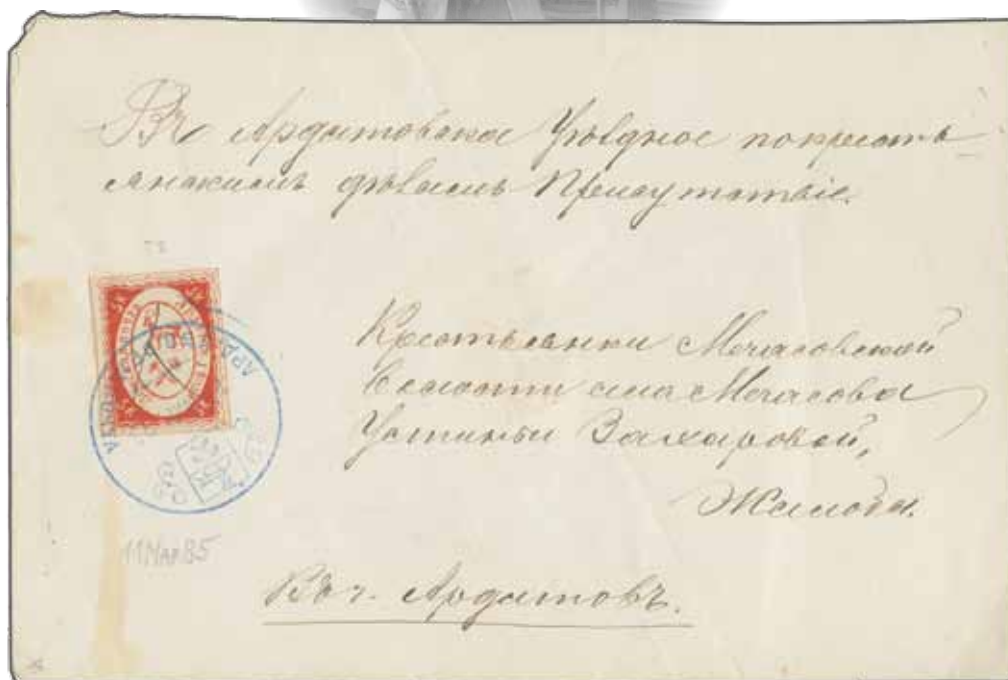 Въ Ардатовское Уѣздное по кресть-
янскимъ дѣламъ Присутствіе.
Крестьянки Мечасовской
волости села Мечасова
Устиньи Захаровой,
Жалоба.
11 Мар 85
Въ г. Ардатовъ.